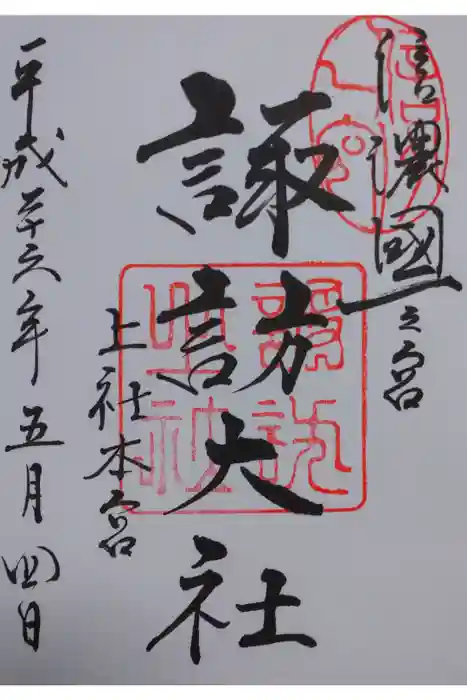 信濃國一之宮
諏訪大社
上社本宮
平成二十六年五月四日